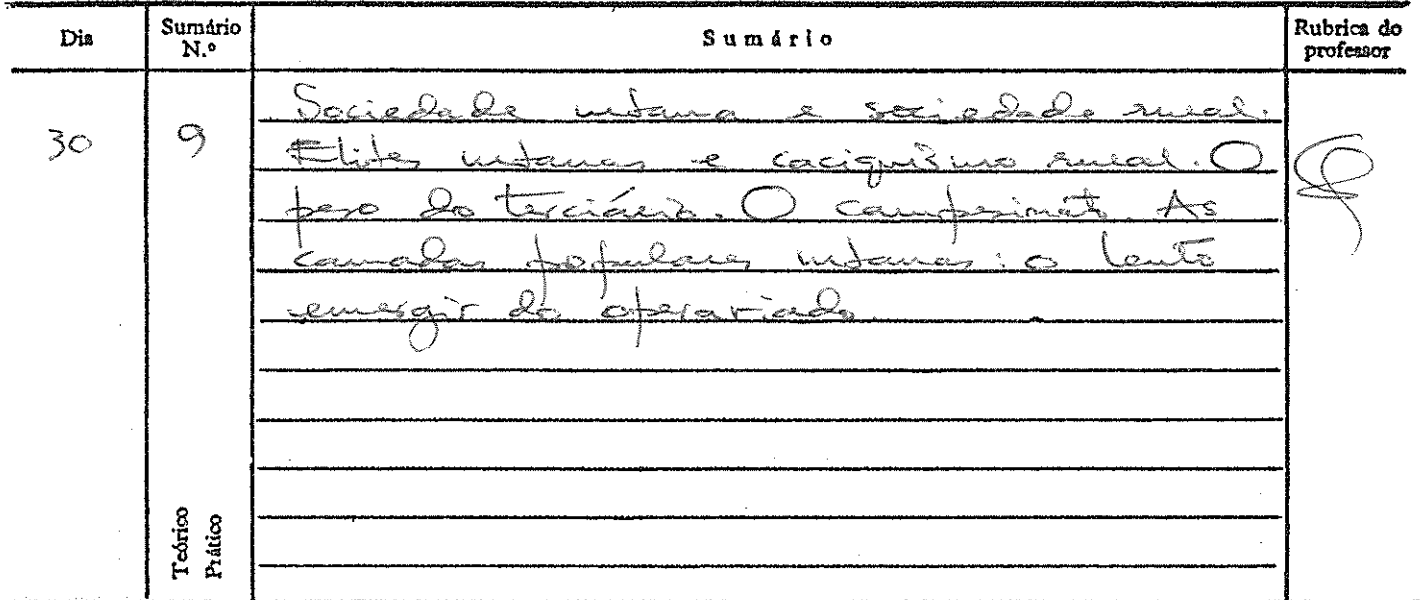 Dia Sumário N.º Sumário Rubrica do professor
30 9
Sociedade urbana e sociedade rural.
Elites urbanas e caciquismo rural. O
peso do terciário. O campesinato. As
camadas populares urbanas: o lento
emergir do operariado.
Teórico
Prático